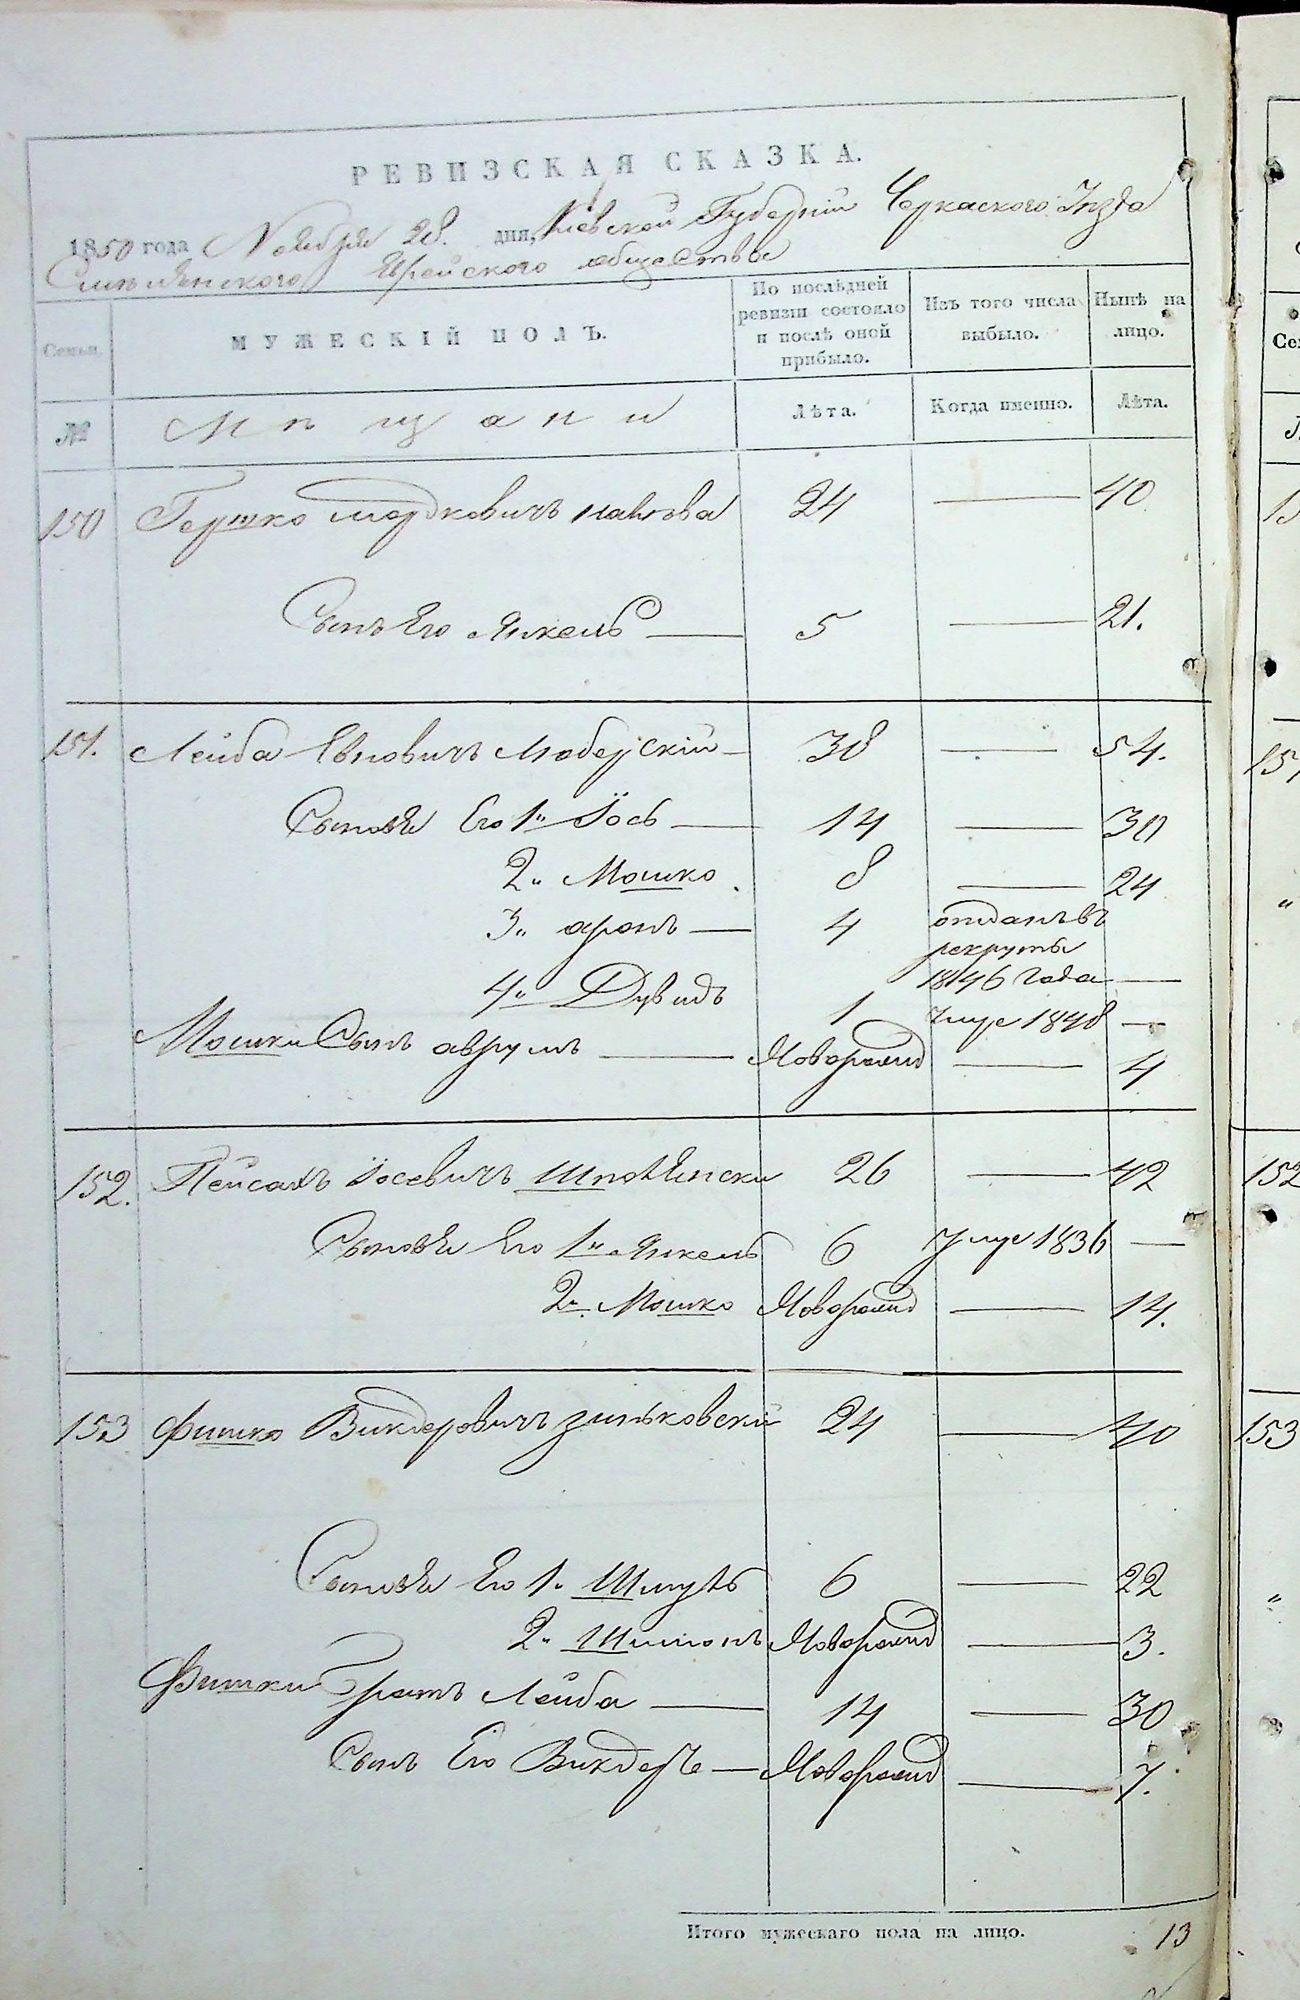 РЕВИЗСКАЯ СКАЗКА.
1850 года Ноября 28. дня, Киевской Губерніи Черкаского Уезда
Смелянского Еврейского общества
Семьи.
МУЖЕСКІЙ ПОЛЪ.
По послѣдней ревизіи состояло и послѣ оной прибыло.
Изъ того числа выбыло.
Нынѣ на лицо.
№ Мѣщани Лѣта. Когда именно. Лѣта.
150 Гершко Мордковичъ 24 — 40
Сынъ Его Янкель — 5 — 21.
151. Лейба Евновичъ Люберскій — 38 — 54.
Сыновья Его 1" Іось — 14 — 30
2" Мошко 8 — 24
3" аронъ — 4 отданъ въ рекруты 1846 года —
4" Дувидъ 1 Умре 1848 —
Мошки Сынъ аврумъ — Новорожд — 4
152. Пейсахъ Іосевичъ Шполянски 26 — 42
Сыновья Его 1" Янкель 6 Умре 1836 —
2" Мошко Новорожд — 14.
153 Фишко Викдеровичъ Зиньковски 24 — 40
Сыновья Его 1" Шмуль 6 — 22
2" Шимонъ Новорожд — 3.
Фишки Братъ Лейба — 14 — 30
Сынъ Его Викдеръ — Новорожд — 7.
Итого мужескаго пола на лицо. 13
Се
№
15
151
"
152
153
"